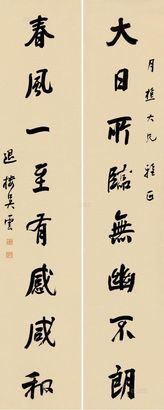 月樵大兄雅正
大日所臨無幽不朗
春風一至有感咸和
退樓吳雲